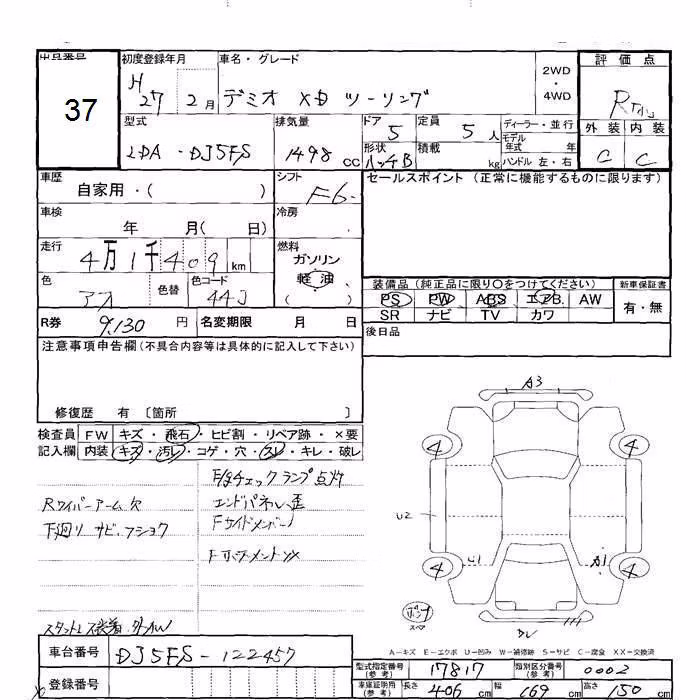 出品番号
37
初度登録年月
H
27 2月
車名・グレード
デミオ XD ツーリング
2WD
・
4WD
評価点
R
外装 内装
C C
型式
LDA - DJ5FS
排気量
1498 cc
ドア
5
形状
ハッチB
定員
5 人
積載
kg
ディーラー・並行
モデル
年式 年
ハンドル 左・右
車歴
自家用・( )
シフト
F6
セールスポイント (正常に機能するものに限ります)
車検
年 月( 日)
冷房
走行
4万1千409 km
燃料
ガソリン
軽油
( )
色
アオ
色替
色コード
44J
装備品 (純正品に限り〇をつけてください)
PS PW ABS エアB. AW
SR ナビ TV カワ
新車保証書
有・無
R券 9,130 円 名変期限 月 日
後日品
注意事項申告欄 (不具合内容等は具体的に記入して下さい)
修復歴 有 〔箇所 〕
検査員
記入欄
FW キズ・飛石・ヒビ割・リペア跡・×要
内装 キズ・汚レ・コゲ・穴・スレ・キレ・破レ
チェックランプ点灯
Rワイパーアーム欠
エンドパネル歪
下廻り サビ・フショク
Fサイドメンバー
A3
4
4
U2
U1
A1
4
4
スペア
A-キズ E-エクボ U-凹み W-補修跡 S-サビ C-腐食 XX-交換済
車台番号 DJ5FS-122457
登録番号
型式指定番号
(参考)
17817
類別区分番号
(参考)
0002
車庫証明用
(参考)
長さ 406 cm 幅 169 cm 高さ 150 cm